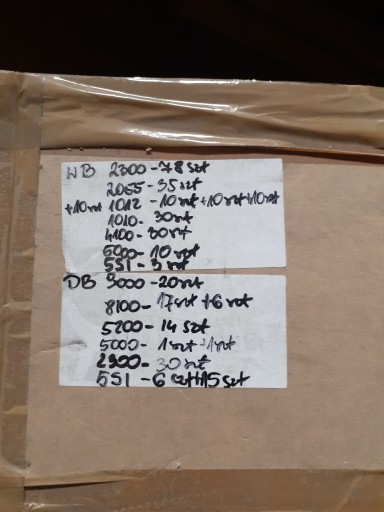 WB 2300 - 78 szt
2055 - 35 szt
+10 szt 1012 - 10 szt + 10 szt + 10 szt
1010 - 30 szt
4100 - 30 szt
6000 - 10 szt
551 - 3 szt
DB 3000 - 20 szt
8100 - 17 szt + 6 szt
5200 - 14 szt
5000 - 1 szt + 1 szt
2900 - 30 szt
551 - 6 szt + 15 szt